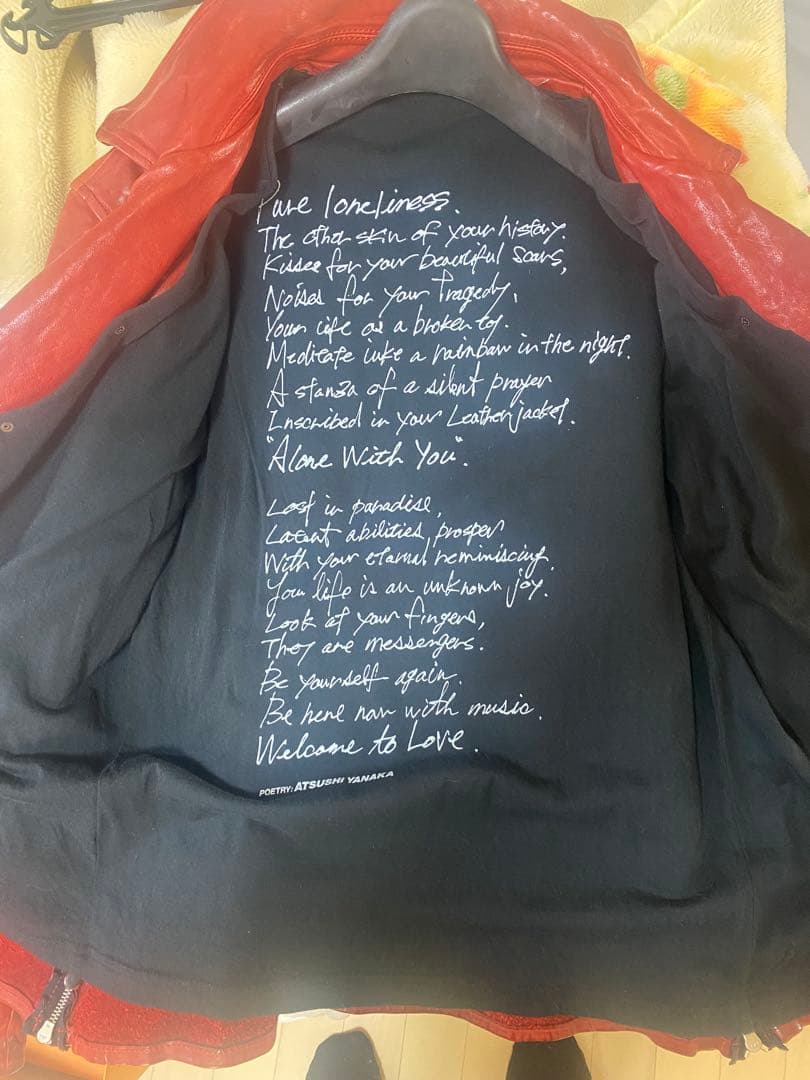 Pure loneliness.
The other skin of your history.
Kisses for your beautiful scars,
Noises for your Tragedy,
Your life as a broken toy.
Meditate like a rainbow in the night.
A stanza of a silent prayer
Inscribed in your Leather jacket.
"Alone With You".
Lost in paradise,
Latent abilities, prosper
With your eternal reminiscing.
Your life is an unknown joy.
Look at your fingers,
They are messengers.
Be yourself again.
Be here now with music.
Welcome to Love.
POETRY: ATSUSHI YANAKA